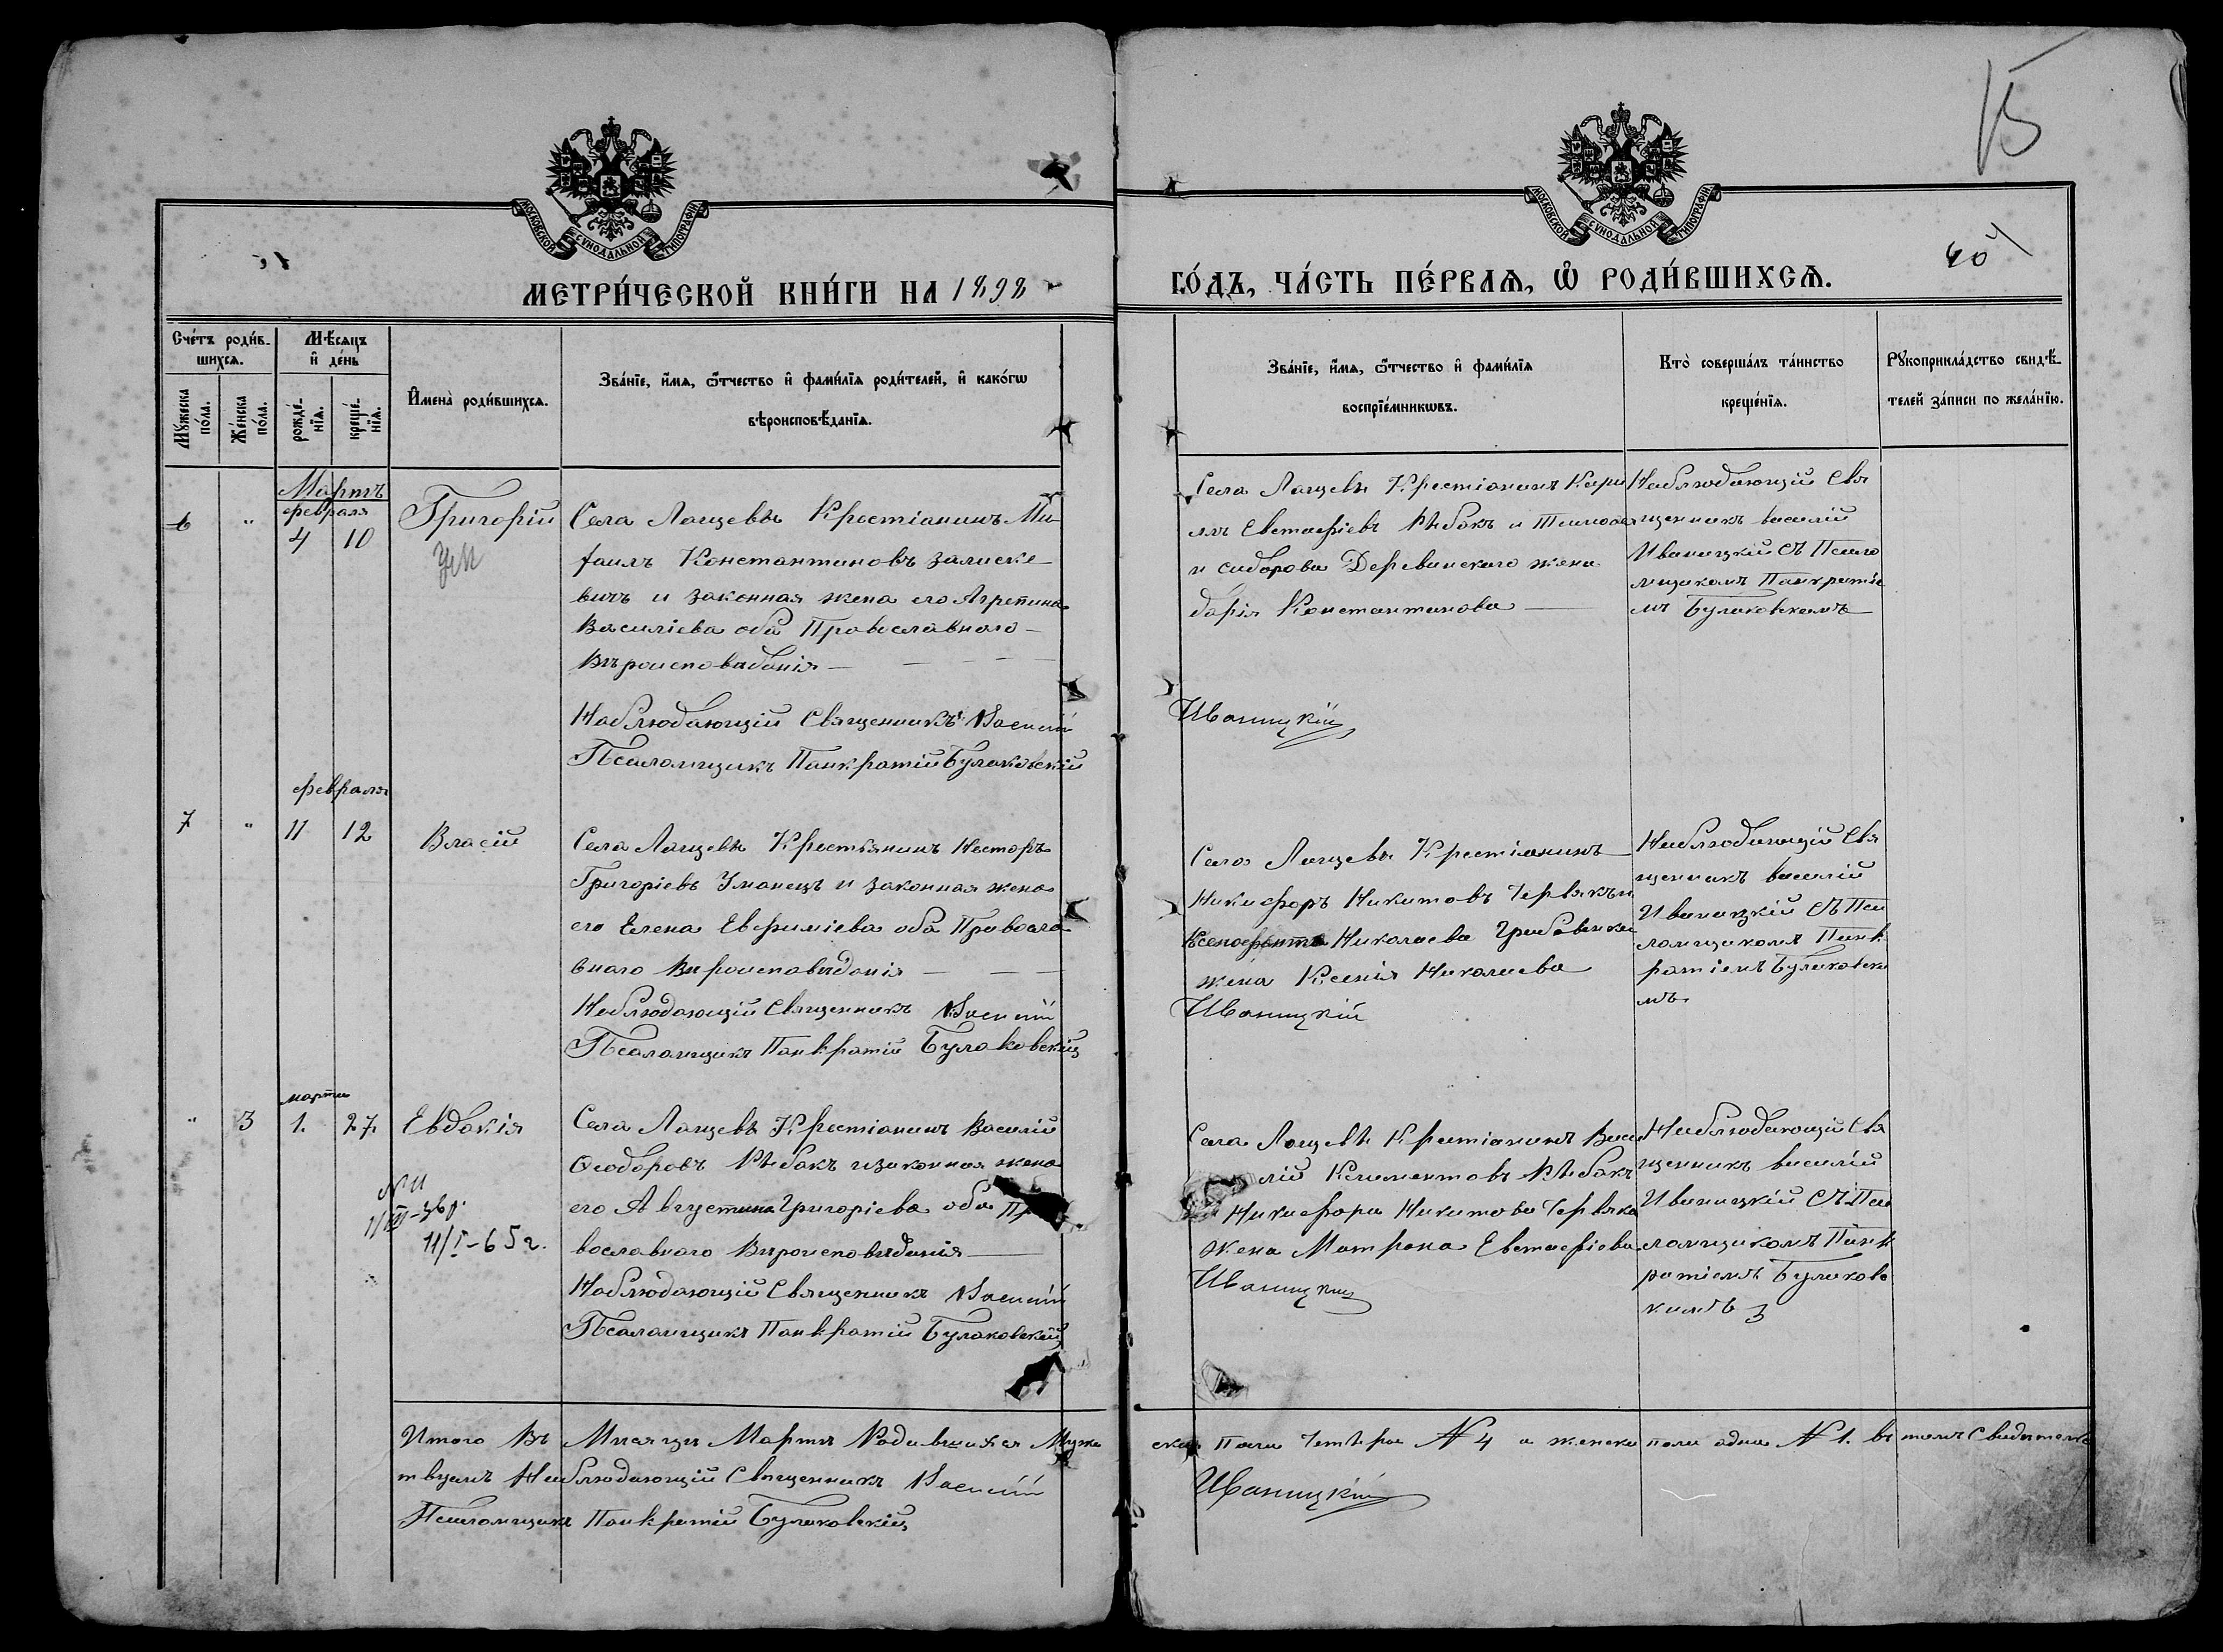 15
40
МОСКОВСКОЙ СѴНОДАЛЬНОЙ ТИПОГРАФІИ
МОСКОВСКОЙ СѴНОДАЛЬНОЙ ТИПОГРАФІИ
МЕТРИ́ЧЕСКОЙ КНИ́ГИ НА 1898
ГО́ДЪ, ЧА́СТЬ ПЕ́РВАѦ, Ѡ РОДИ́ВШИХСѦ.
Сче́тъ роди́в-
шихсѧ.
Му́жеска по́ла.
Же́нска по́ла.
Мѣ́сѧцъ
и҆ де́нь
рожде́-
нїѧ.
креще́-
нїѧ.
И҆мена̀ роди́вшихсѧ.
Зва́нїе, и҆́мѧ, ѻ҆́тчество и҆ фами́лїѧ роди́телей, и҆ како́гѡ
вѣроисповѣ́данїѧ.
Зва́нїе, и҆́мѧ, ѻ҆́тчество и҆ фами́лїѧ
воспрїе́мникѡвъ.
Кто̀ соверша́лъ та́инство
креще́нїѧ.
Рꙋкоприкла́дство свидѣ́-
телей за́писи по жела́нїю.
Мартъ
февраля
6 " 4 10 Григорій
Села Лащевъ Крестіанинъ Ми-
хаилъ Константиновъ Залиске-
вичъ и законная жена его Агрепина
Василіева оба Православнаго
Вѣроисповѣданія
Наблюдающій Священникъ Василій
Псаломщикъ Панкратій Булаковскій
Села Лащевъ Крестіанинъ Кири
лъ Евстафіевъ Рѣбакъ и Тимофе
и Сидорова Деревинскаго жена
Дарія Константинова
Иваницкій
Наблюдающій Свя
щенникъ Василій
Иваницкій съ Псало
мщикомъ Панкратіе
мъ Булаковскемъ
февраля
7 " 11 12 Власій
Села Лащевъ Крестьянинъ Несторъ
Григоріевъ Уманецъ и законная жена
его Елена Евфиміева оба Правосла
внаго Вѣроисповѣданія
Наблюдающій Священникъ Василій
Псаломщикъ Панкратій Булаковскій
Села Лащевъ Крестіанинъ
Никифоръ Никитовъ Червякъ и
Ксенофонта Николаева
жена Ксенія Николаева
Иваницкій
Наблюдающій Свя
щенникъ Василій
Иваницкій съ Пса
ломщикомъ Панк
ратіемъ Булаковски
мъ
марта
" 3 1. 27. Евдокія
11/I-65г.
Села Лащевъ Крестіанинъ Василій
Ѳеодоровъ Рѣбакъ и законная жена
его Августина Григоріева оба Пра
вославнаго Вѣроисповѣданія
Наблюдающій Священникъ Василій
Псаломщикъ Панкратій Булаковскій
Села Лащевъ Крестіанинъ Васи
лій Климентовъ Рѣбакъ
Никифора Никитова Червяка
жена Матрона Евстафіева
Иваницкій
Наблюдающій Свя
щенникъ Василій
Иваницкій съ Пса
ломщикомъ Панк
ратіемъ Булаковс
кимъ
Итого Въ Мѣсяцѣ Мартѣ Родившихся Муже
ска Пола Четыре № 4 а женска пола одна № 1. въ томъ Свидѣтельс
твуемъ Наблюдающій Священникъ Василій
Иваницкій
Псаломщикъ Панкратій Булаковскій